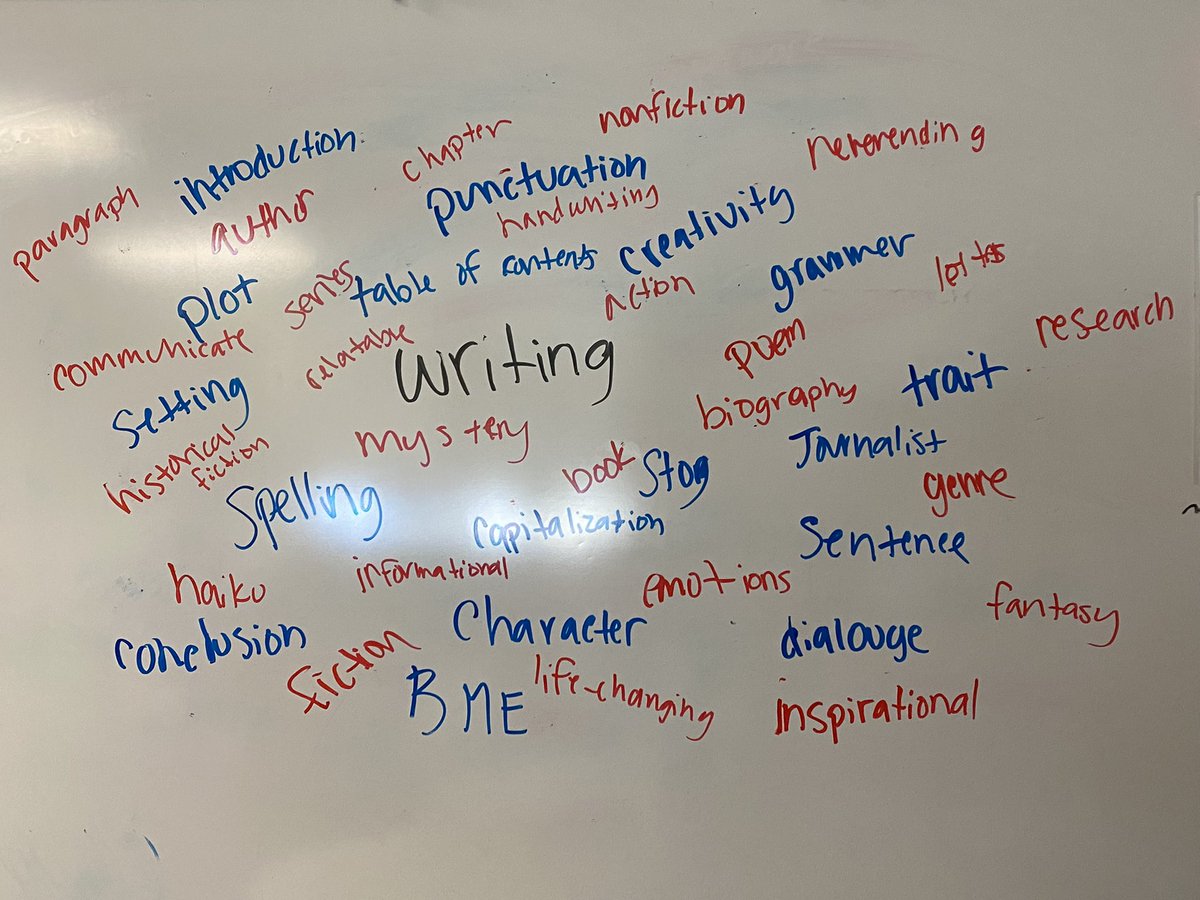 nonfiction
chapter
neverending
introduction
punctuation
paragraph
author
handwriting
creativity
grammer
table of contents
series
plot
action
communicate
relatable
writing
poem
research
setting
biography
trait
historical
fiction
mystery
Journalist
book
Spelling
capitalization
genre
Sentence
haiku
informational
emotions
fantasy
conclusion
Character
dialouge
fiction
BME
life-changing
inspirational